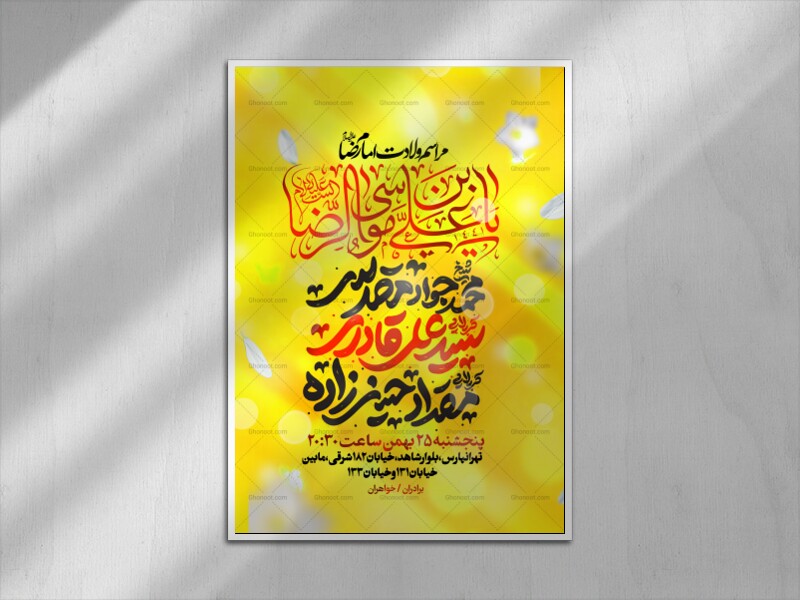 مراسم ولادت امام رضا علیه‌السلام
یا علی بن موسی الرضا علیه السلام
شیخ محمد جواد مقدسی
کربلایی سید علی قادری
کربلایی مقداد حسین زاده
پنجشنبه ۲۵ بهمن ساعت ۲۰:۳۰
تهرانپارس، بلوار شاهد، خیابان ۱۸۲ شرقی، مابین
خیابان ۱۳۱ و خیابان ۱۳۳
برادران / خواهران
Ghonoot.com